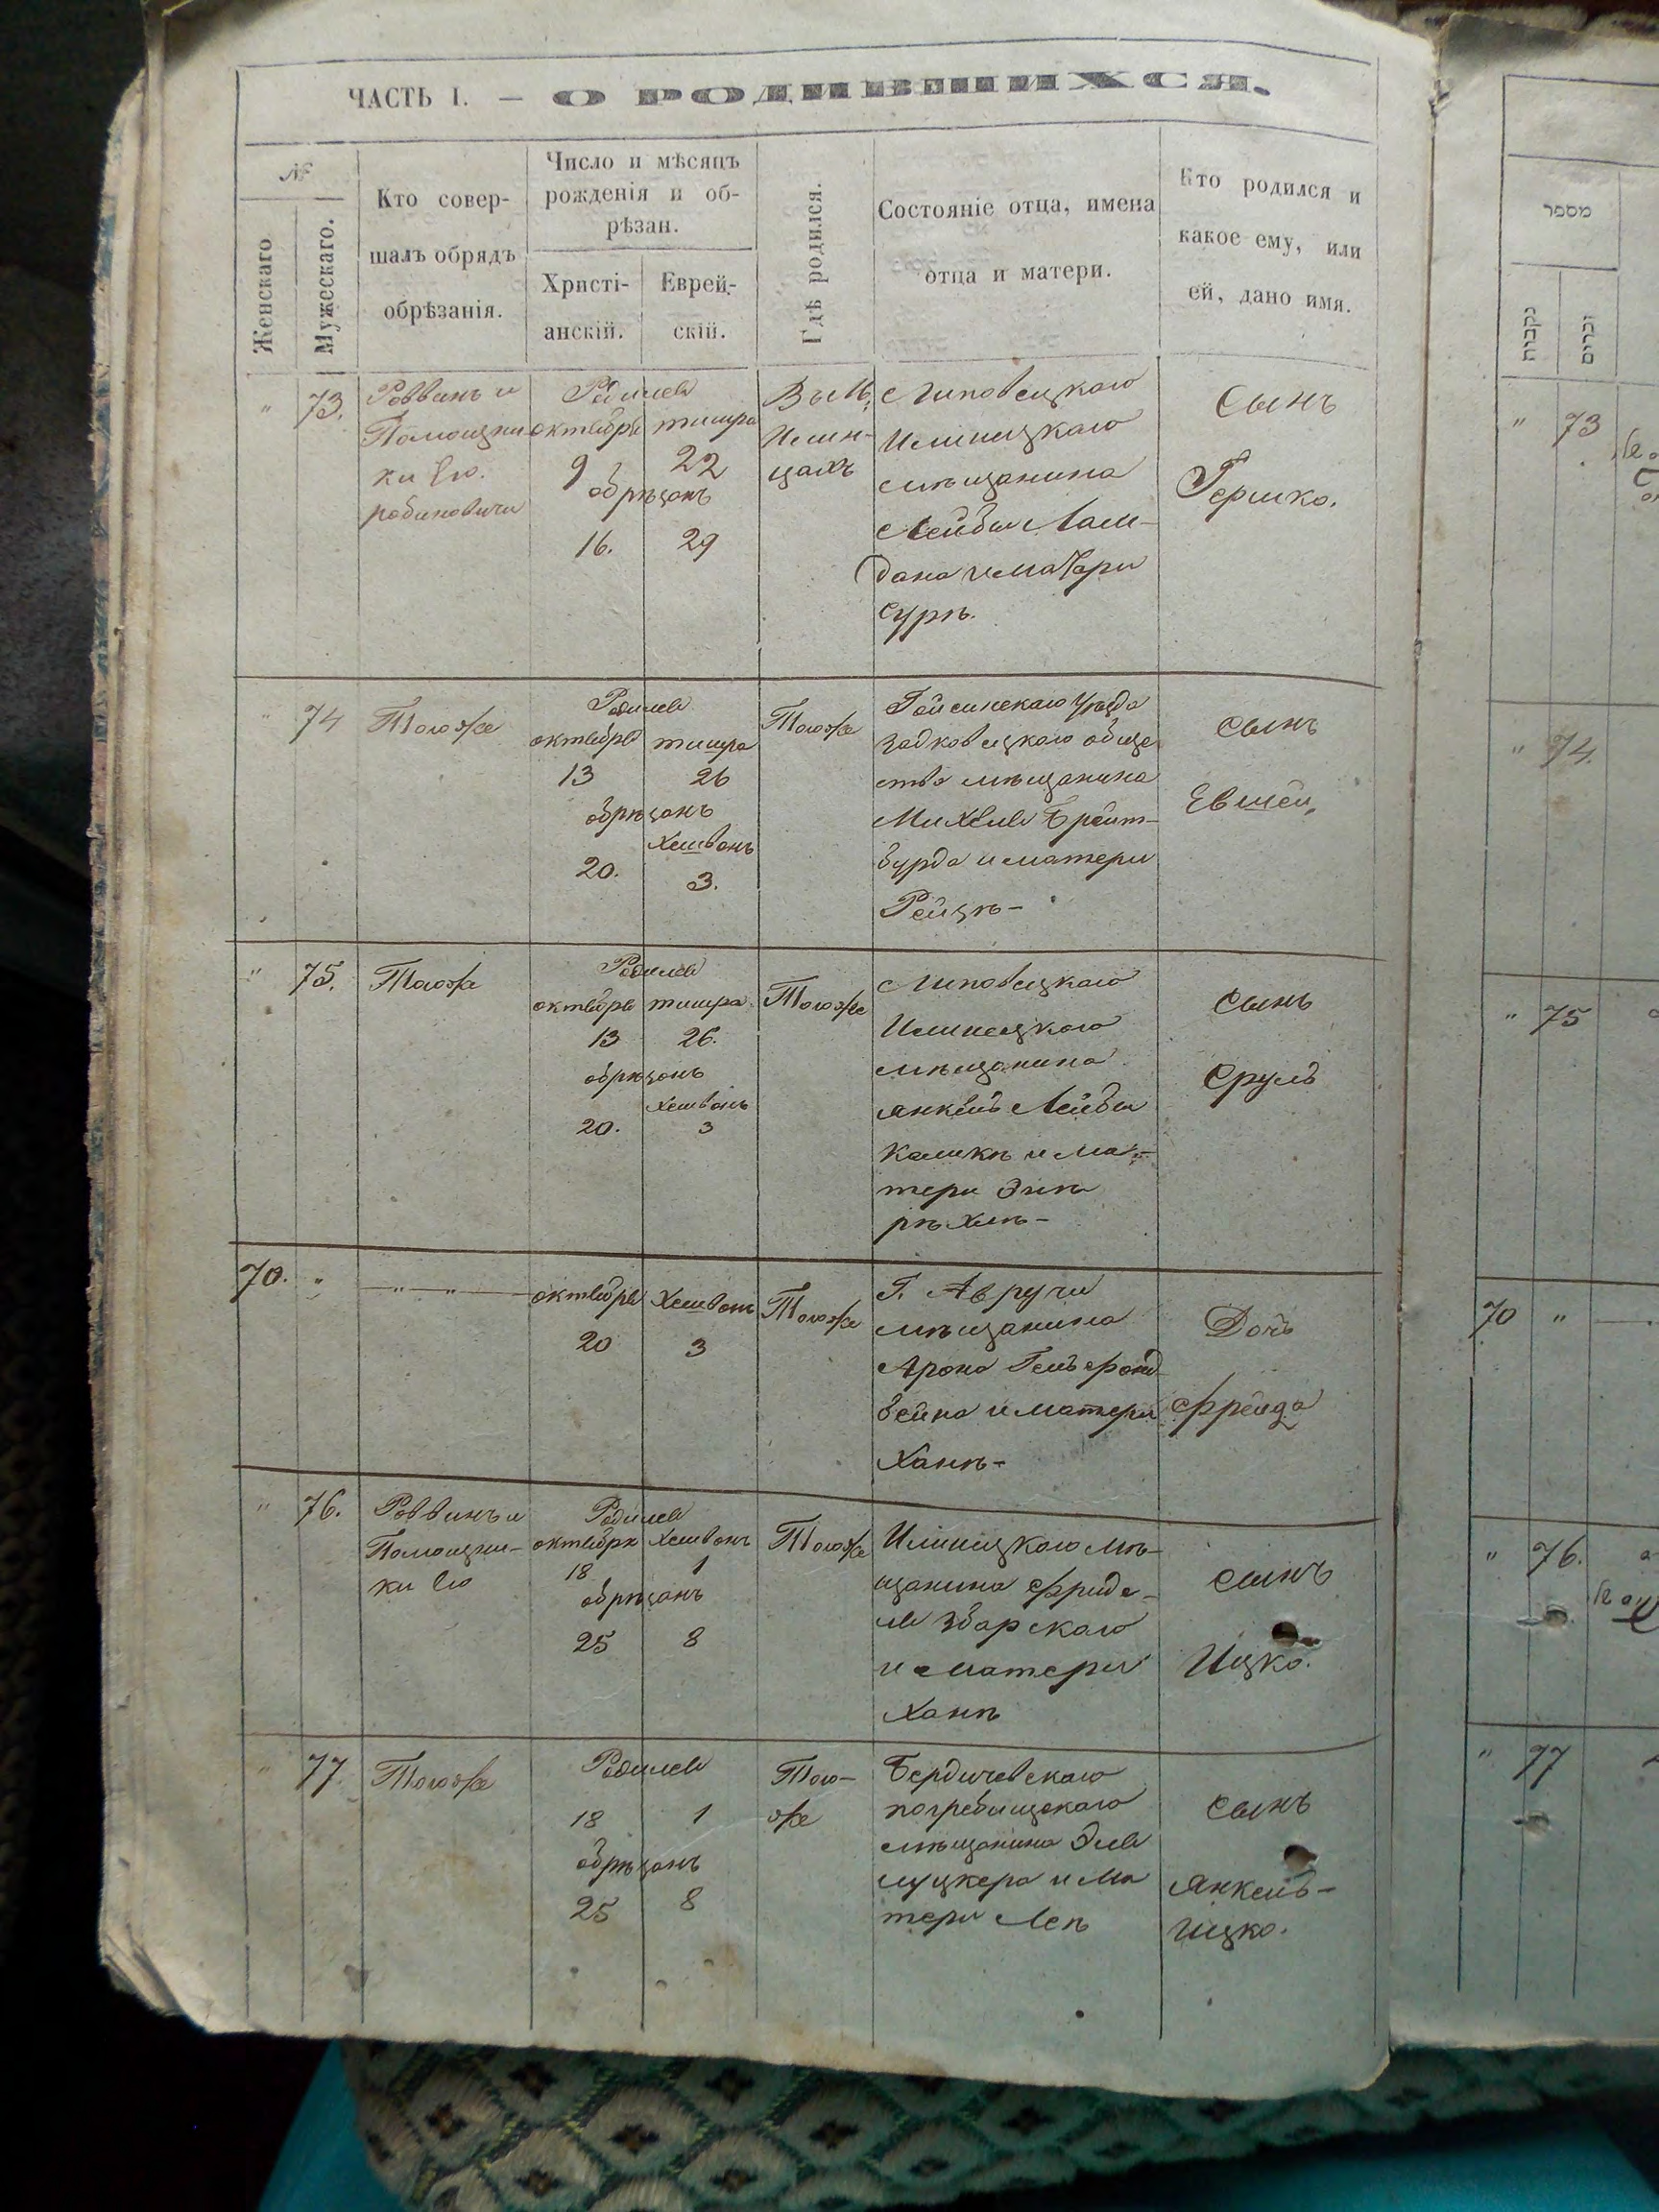 ЧАСТЬ I. — О РОДИВШИХСЯ.
№
Женскаго
Мужескаго.
Кто совер-
шалъ обрядъ
обрѣзанія.
Число и мѣсяцъ
рожденія и об-
рѣзан.
Христі-
анскій.
Еврей-
скій.
Гдѣ родился.
Состояніе отца, имена
отца и матери.
Кто родился и
какое ему, или
ей, дано имя.
" 73.
Роввинъ и
Помощни
ки Его.
робиновичи
Родился
октября тишра
9 22
обрѣзанъ
16. 29
Въ М.
Илин-
цахъ
Липовецкаго
Илинецкаго
мѣщанина
Лейбы
дана и матери
Сурѣ.
Сынъ
Гершко.
" 74
Тогоже
Родился
октября тишра
13 26
обрѣзанъ
Хешванъ
20. 3.
Тогоже
Гайсинскаго уезда
обще
ства мѣщанина
Михеля Брейт-
бурда и матери
Рейзѣ-
Сынъ
Евшей.
" 75.
Тогоже
Родился
октября тишра
13 26.
обрѣзанъ
Хешванъ
20. 3
Тогоже
Липовецкаго
Илинецкаго
мѣщанина
Янкель Лейбы
и ма-
тери
рѣхлѣ-
Сынъ
Сруль
70. "
— " — " —
октября Хешванъ
20 3
Тогоже
Г. Авручи
мѣщанина
Арона
бейна и матери
Ханѣ-
Дочь
Фрейда
" 76.
Роввинъ и
Помощни-
ки Его
Родился
октября Хешванъ
18 1
обрѣзанъ
25 8
Тогоже
Илинецкаго мѣ-
щанина Фриде-
ля Збарскаго
и матери
Ханѣ
сынъ
Ицко.
" 77.
Тогоже
Родился
18 1
обрѣзанъ
25 8
Того-
же
Бердичевскаго
погребищскаго
мѣщанина Эля
луцкера и ма
тери Леѣ
Сынъ
Янкель-
Ицко.
מספר
נקבות
זכרים
" 73
" 74.
" 75
70 "
" 76.
" 77